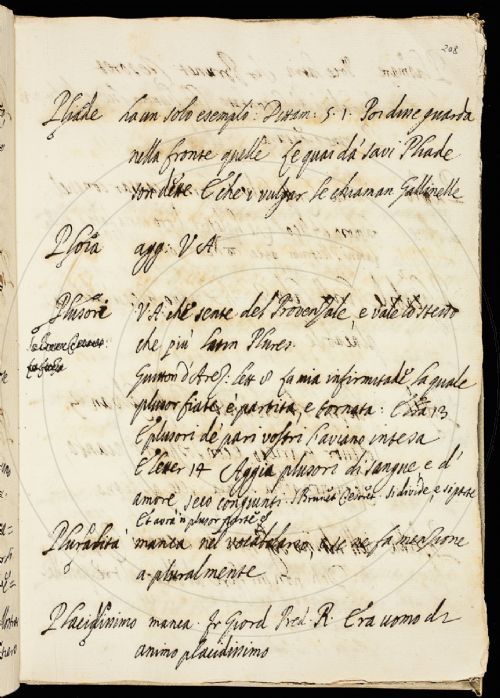 208
Pliade ha un solo esempio: Dittam: 5. 1. Poi dire guarda
nella fronte quelle Le quai da' savi Pliade
son dette E che i vulgar le chiaman Gallinelle
agg: V A
Plusori V. A. che sente del Provenzale, e vale lo stesso
che più latin Plures
Guitton d'Arez. Lett. 8 la mia infirmitade la quale
plusor fiate è partita, e tornata: 13
E plusori de' pari vostri s'aviano intesa
E letter. 14 Aggia plusori di sangue e d'
amore seco congiunti. si divide, e si parte
Et avrà
Pluralità manca nel vocabolario, ne fa menzione
a pluralmente
Placidissimo manca. Fr Giord Pred. R. Era uomo di
animo placidissimo